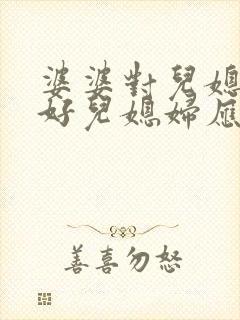 婆婆對兒媳
好兒媳婦應
善喜勿怒